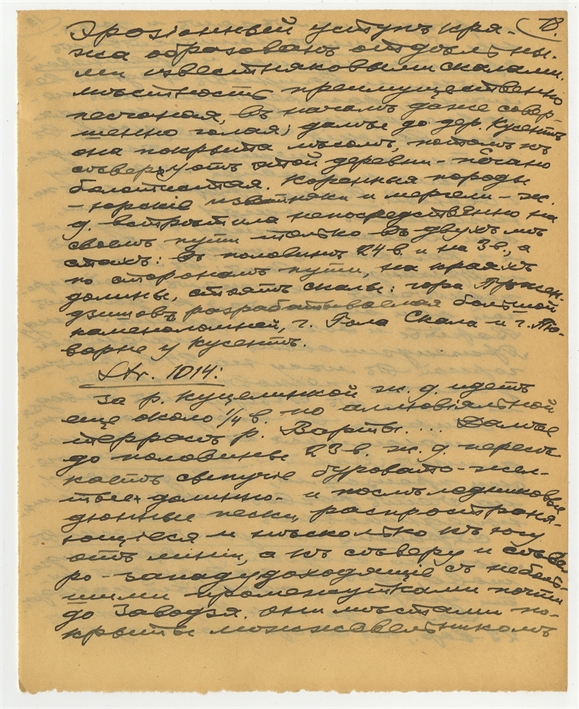 Эрозіонный уступъ кря- 13.
жа образованъ отдѣльны-
ми известняковыми скалами.
Мѣстность преимущественно
песчаная, въ началѣ даже совер-
шенно голая; дальше до дер. Кусентъ
она покрыта лѣсомъ, потомъ къ
сѣверу отъ этой деревни -
болотистая. Коренныя породы
- юрскіе известняки и мергели - ж.
д. встрѣтила непосредственно на
своемъ пути только въ двухъ мѣ-
стахъ: въ половинѣ 24 в. и на 3 в., а
по сторонамъ пути, на краяхъ
долины, стоятъ скалы: гора
разрабатываемая большой
каменоломней, г. Гола Скала и г. То-
варне у Кусентъ.
Str. 1014:
За р. Куцелинкой ж. д. идетъ
еще около 1/4 в. по аллювіяльной
террасѣ р. Варты.... Дальше
до половины 23 в. ж. д. пересѣ-
каетъ сыпучіе буровато-жел-
тые долинно- и послѣледниковые
дюнные пески, распространя-
ющіеся и нѣсколько къ югу
отъ линіи, а къ сѣверу и сѣве-
ро-западу доходящіе съ неболь-
шими промежутками почти
до Заводзя. Они мѣстами по-
крыты можжевельникомъ